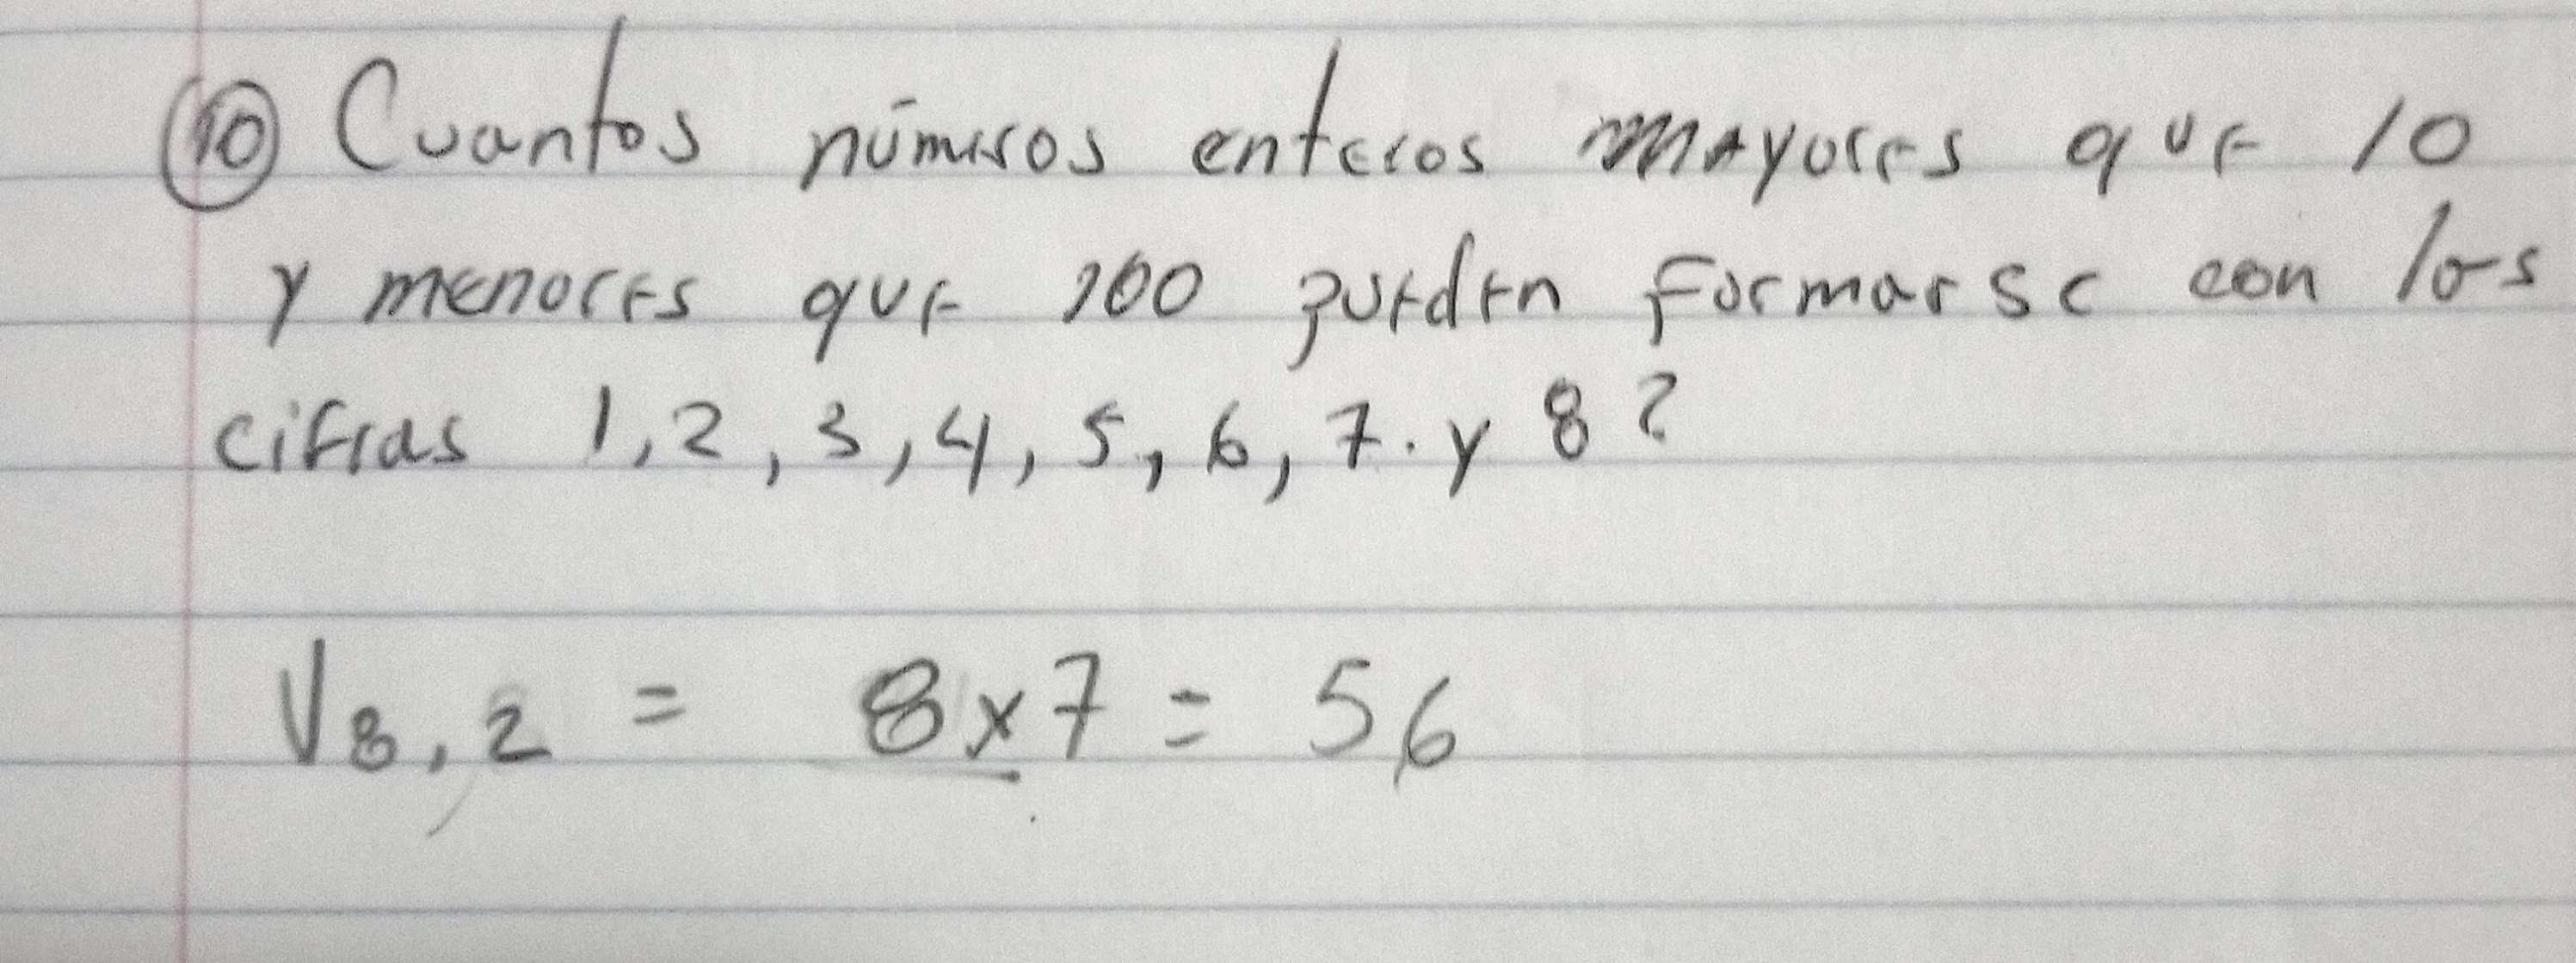 10 Cuantos números enteros mayores que 10
y menores que 100 pueden formarse con los
cifras 1, 2, 3, 4, 5, 6, 7. y 8?
V8,2 = 8x7 = 56